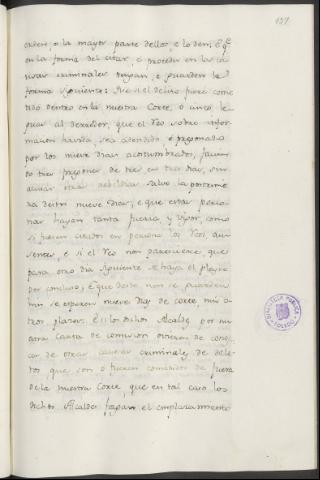 157
ordene, o la mayor parte dellos, e lo demas q.e
en la forma del citar, e proceder en las ca
usas criminales tengan, e guarden la
forma siguiente: Que si el delito fuere come
tido dentro en la nuestra Corte, o cinco le
guas al derredor, que el Reo sobre infor
macion havida, sea atendido e pregonado
por los nueve dias acostumbrados, facien
do tres pregones de tres en tres dias, sin
acusar otra rebeldia, salvo la postrime
ra de los nueve dias, e que estos prego
nes hayan tanta fuerza, y vigor, como
si fuesen citados en persona los Reos, au
sentes, e si el Reo non pareciere que
para otro dia siguiente se haya el pleyto
por concluso, e que desto non se guarden
nin se esperen nueve dias de corte, nin o
tros plazos. E si los dichos Alcaldes por nu
estra Carta de comision ovieren de cono
cer de otras causas criminales de deli
tos que son o fueren cometidos de fuera
de la nuestra Corte, que en tal caso los
dichos Alcaldes fagan el emplazamiento
BIBLIOTECA PUBLICA
TOLEDO